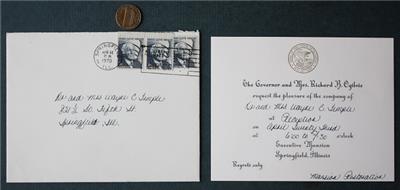 SPRINGFIELD
1970
ILL
Dr and Mrs Wayne C. Temple
So. Fifth St.
Springfield, Ill.
The Governor and Mrs. Richard B. Ogilvie
request the pleasure of the company of
Dr and Mrs Wayne C Temple
at Reception
on April Twenty Third
at 6:00 to 7:30 o'clock
Executive Mansion
Springfield, Illinois
Regrets only
Mansion Restoration